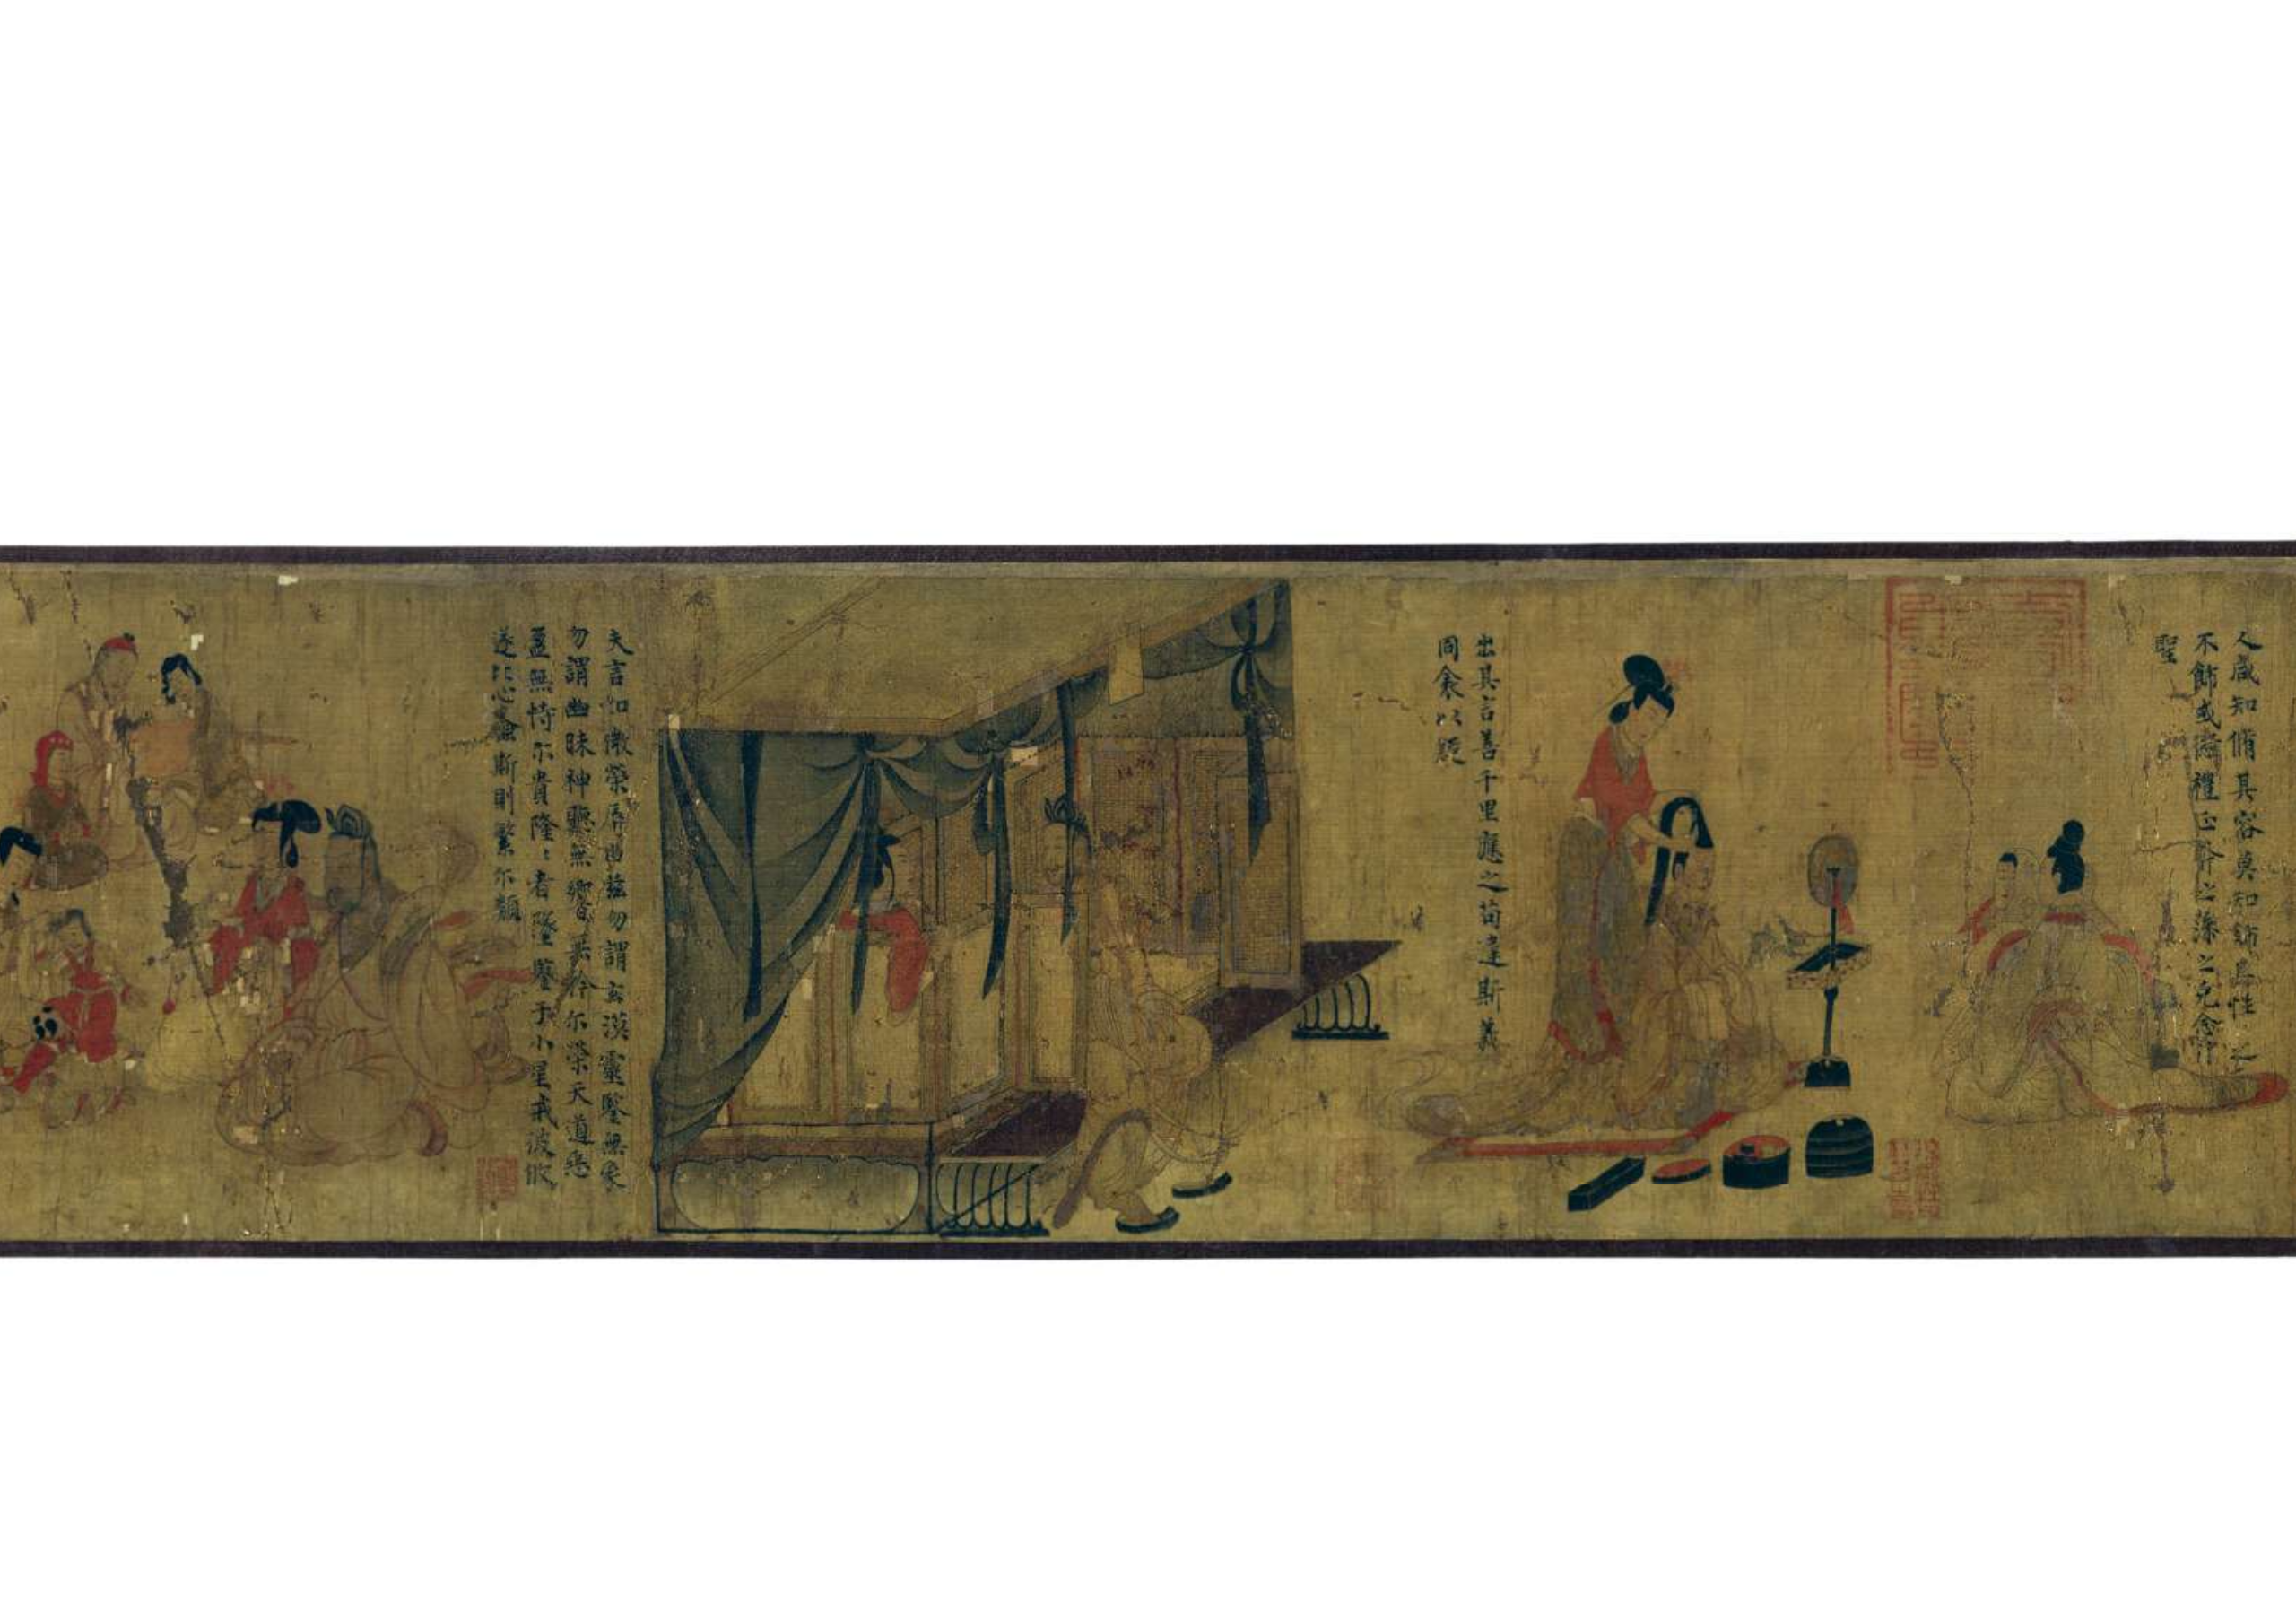 人咸知脩其容莫知飾其性性之
不飾或愆禮正斧之藻之克念作
聖
出其言善千里應之苟違斯義
同衾以疑
夫言如微榮辱由茲勿謂玄漠靈鑒無象
勿謂幽昧神聽無響無矜尔榮天道惡
盈無恃尔貴隆〻者墜鑒于小星戒彼攸
遂比心螽斯則繁尔類